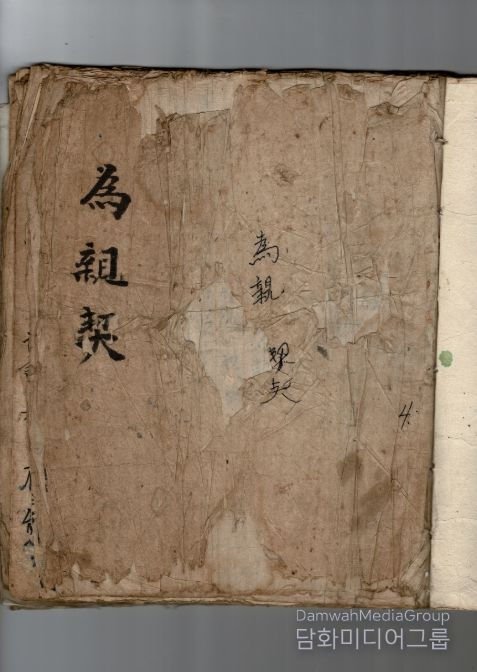 為親契
為親契
4.
DamwahMediaGroup
담화미디어그룹